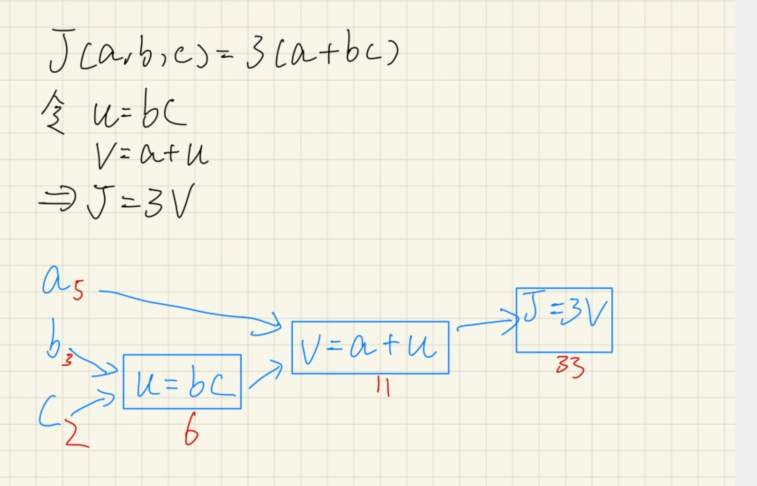 J(a,b,c)=3(a+bc)
令 u=bc
v=a+u
⇒J=3V
a 5
b 3
c 2
u=bc
6
v=a+u
11
J=3V
33